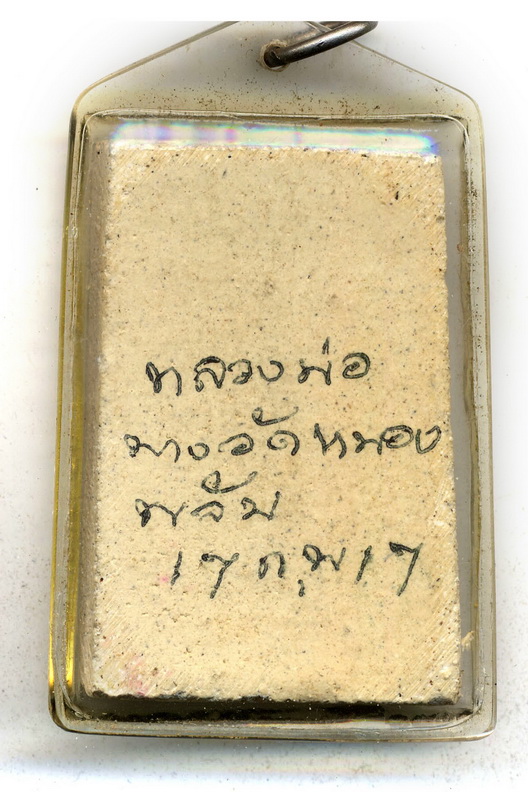 หลวงพ่อ
นางวัดหนอง
พลับ
17 กุม 17